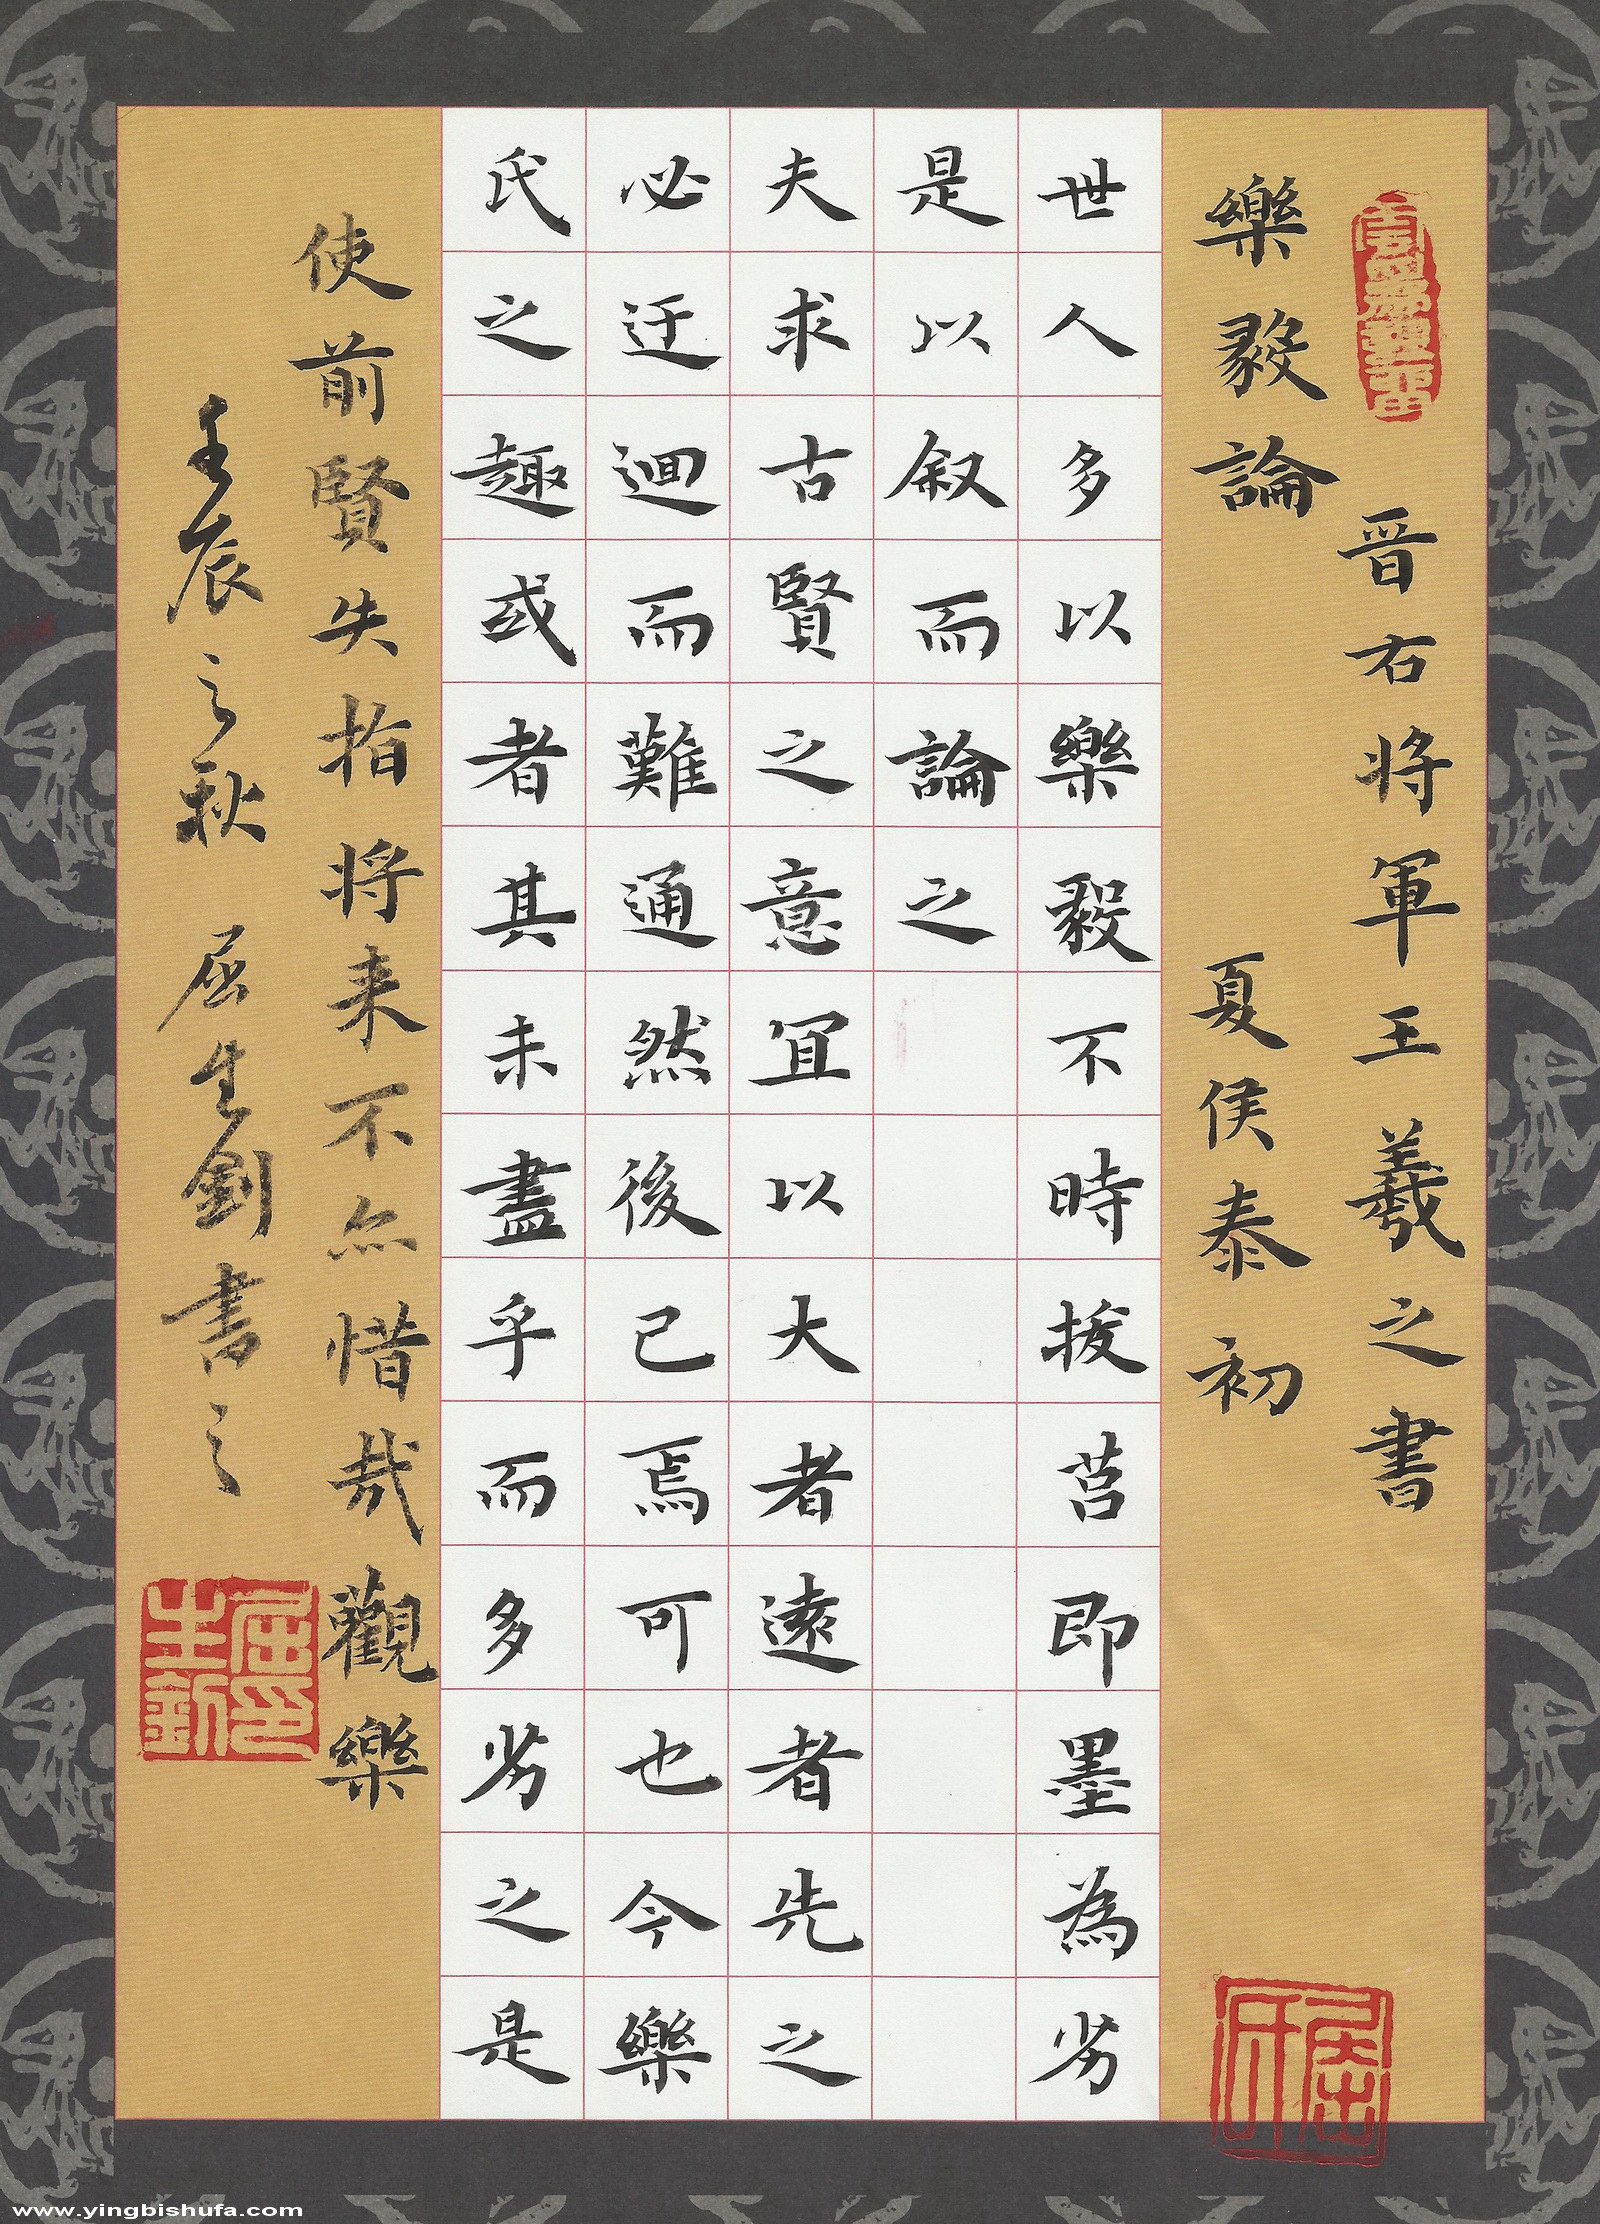 晉右将軍王羲之書
樂毅論 夏侯泰初
世人多以樂毅不時拔莒即墨為劣
是以叙而論之
夫求古賢之意宜以大者遠者先之
必迂迴而難通然後已焉可也今樂
氏之趣或者其未盡乎而多劣之是
使前賢失指将来不亦惜哉觀樂
壬辰之秋 屈生釗書之
屈生釗印
www.yingbishufa.com